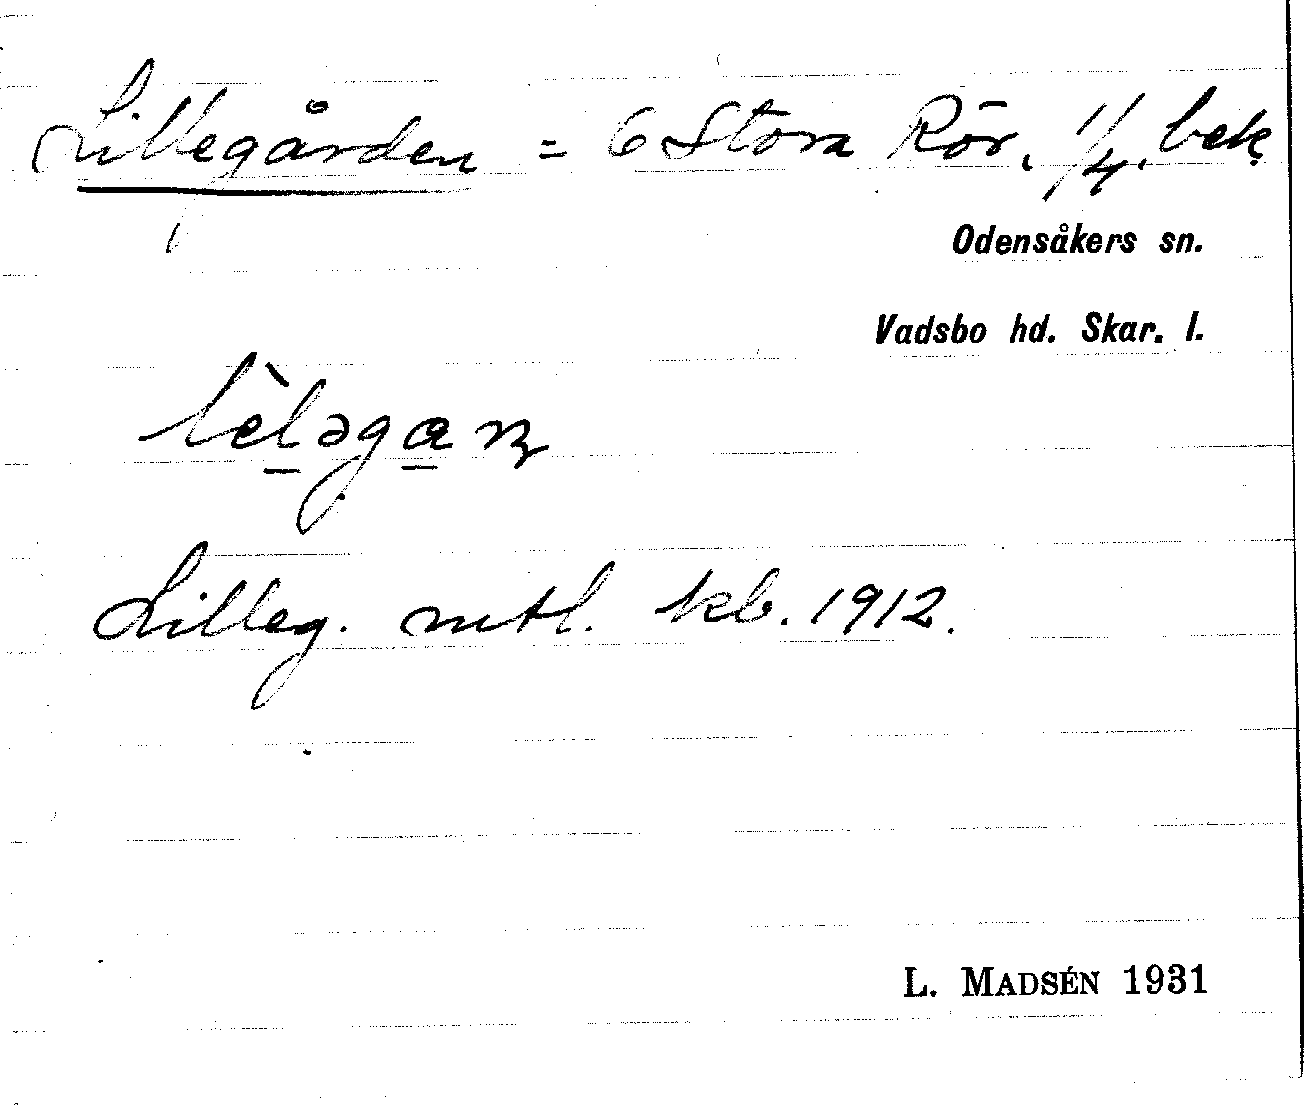 Lillegården = 6 Stora Rör. 1/4. bek
Odensåkers sn.
Vadsbo hd. Skar. l.
Lilleg. mtl. kb. 1912.
L. MADSÉN 1931